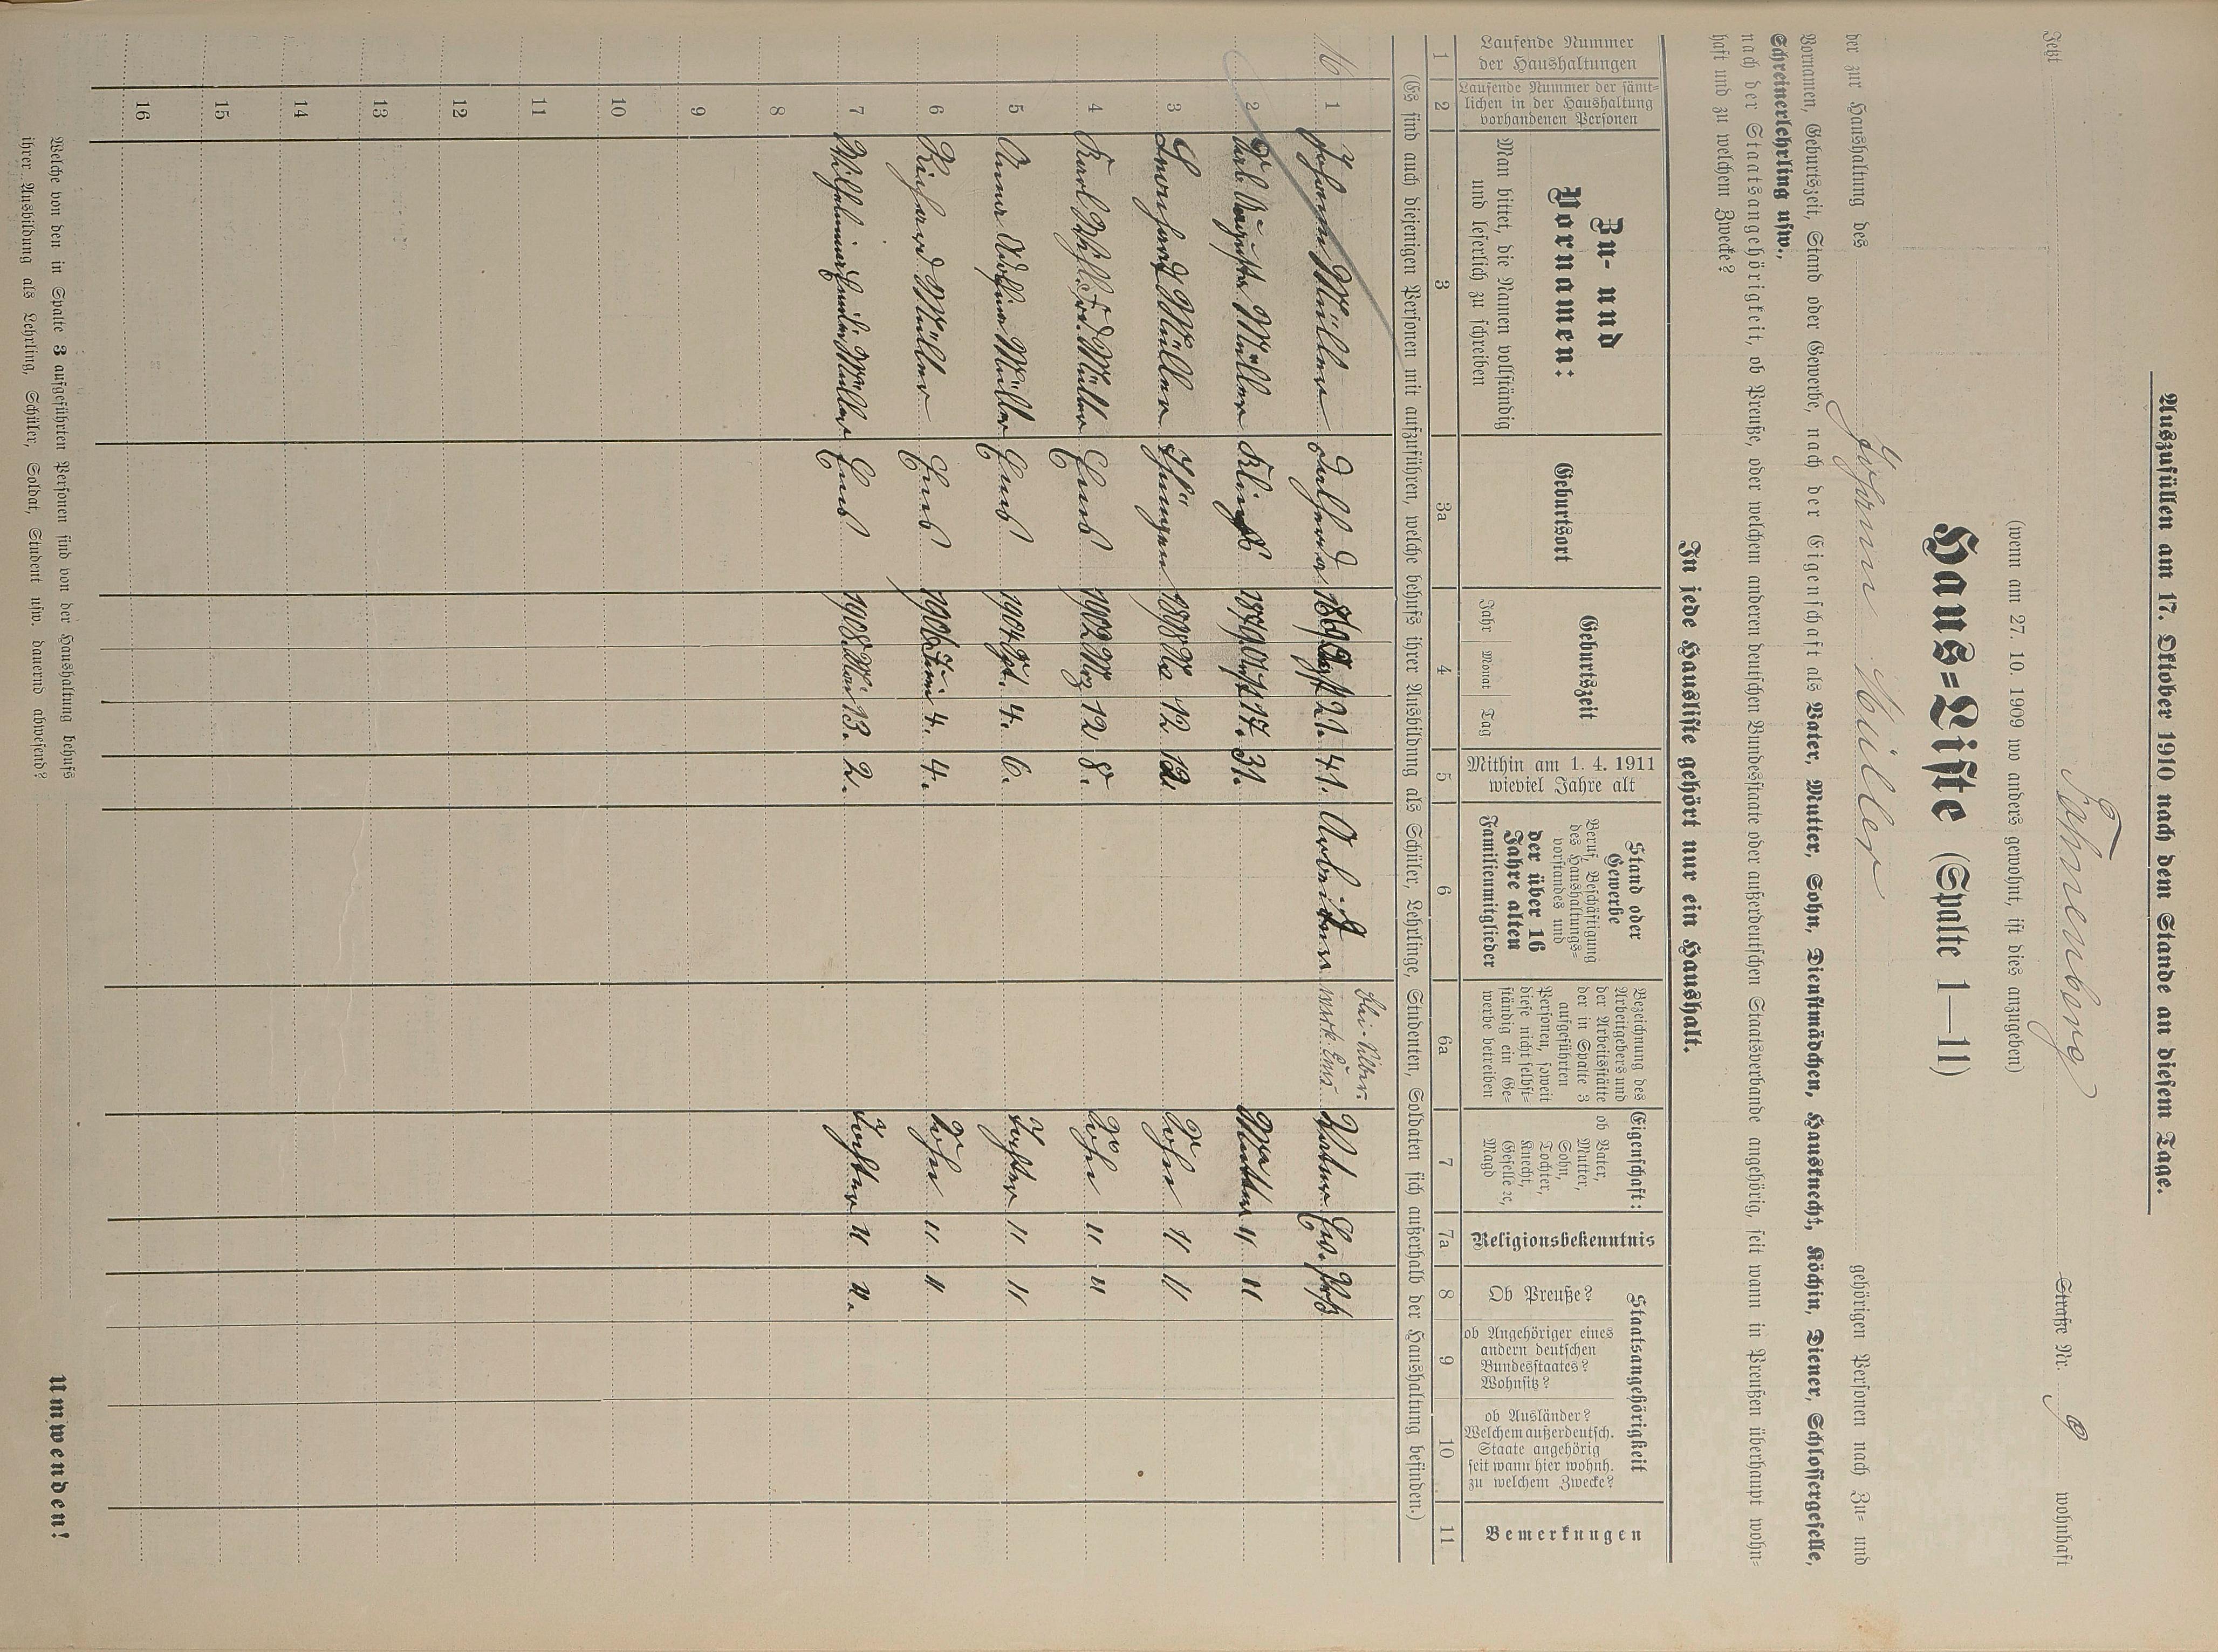 Auszufüllen am 17. Oktober 1910 nach dem Stande an diesem Tage.
Jetzt Straße Nr. 9 wohnhaft
(wenn am 27. 10. 1909 wo anders gewohnt, ist dies anzugeben)
Haus=Liste (Spalte 1—11)
der zur Haushaltung des Johann Müller gehörigen Personen nach Zu= und
Vornamen, Geburtszeit, Stand oder Gewerbe, nach der Eigenschaft als Vater, Mutter, Sohn, Dienstmädchen, Hausknecht, Köchin, Diener, Schlossergeselle,
Schreinerlehrling usw.,
nach der Staatsangehörigkeit, ob Preuße, oder welchem anderen deutschen Bundesstaate oder außerdeutschen Staatsverbande angehörig, seit wann in Preußen überhaupt wohn=
haft und zu welchem Zwecke?
In jede Hausliste gehört nur ein Haushalt.
Laufende Nummer
der Haushaltungen
Laufende Nummer der sämt=
lichen in der Haushaltung
vorhandenen Personen
Zu- und
Vornamen:
Man bittet, die Namen vollständig
und leserlich zu schreiben
Geburtsort
Geburtszeit
Jahr Monat Tag
Mithin am 1. 4. 1911
wieviel Jahre alt
Stand oder
Gewerbe
Beruf, Beschäftigung
des Haushaltungs=
vorstandes und
der über 16
Jahre alten
Familienmitglieder
Bezeichnung des
Arbeitgebers und
der Arbeitsstätte
der in Spalte 3
aufgeführten
Personen, soweit
diese nicht selbst=
ständig ein Ge=
werbe betreiben
Eigenschaft:
ob Vater,
Mutter,
Sohn,
Tochter,
Knecht,
Geselle ꝛc,
Magd
Religionsbekenntnis
Staatsangehörigkeit
Ob Preuße?
ob Angehöriger eines
andern deutschen
Bundesstaates?
Wohnsitz?
ob Ausländer?
Welchem außerdeutsch.
Staate angehörig
seit wann hier wohnh.
zu welchem Zwecke?
Bemerkungen
1 2 3 3a 4 5 6 6a 7 7a 8 9 10 11
(Es sind auch diejenigen Personen mit aufzuführen, welche behufs ihrer Ausbildung als Schüler, Lehrlinge, Studenten, Soldaten sich außerhalb der Haushaltung befinden.)
16 1 Johann Müller 1869 21. 41. Arbeiter Blei. Silber. werk. Ems. Vater Ev.
2 Müller 1879 17. 31. Mutter " "
3 Müller 1898 12 12. Sohn " "
4 Karl Müller Ems 1902 Mrz 12 8. Sohn " "
5 Anna Müller Ems 1904 4. 6. Tochter " "
6 Richard Müller Ems 1906 Juni 4. 4. Sohn " "
7 Müller Ems 1908 Mai 13. 2. Tochter " ".
8
9
10
11
12
13
14
15
16
Welche von den in Spalte 3 aufgeführten Personen sind von der Haushaltung behufs
ihrer Ausbildung als Lehrling, Schüler, Soldat, Student usw. dauernd abwesend?
Umwenden!